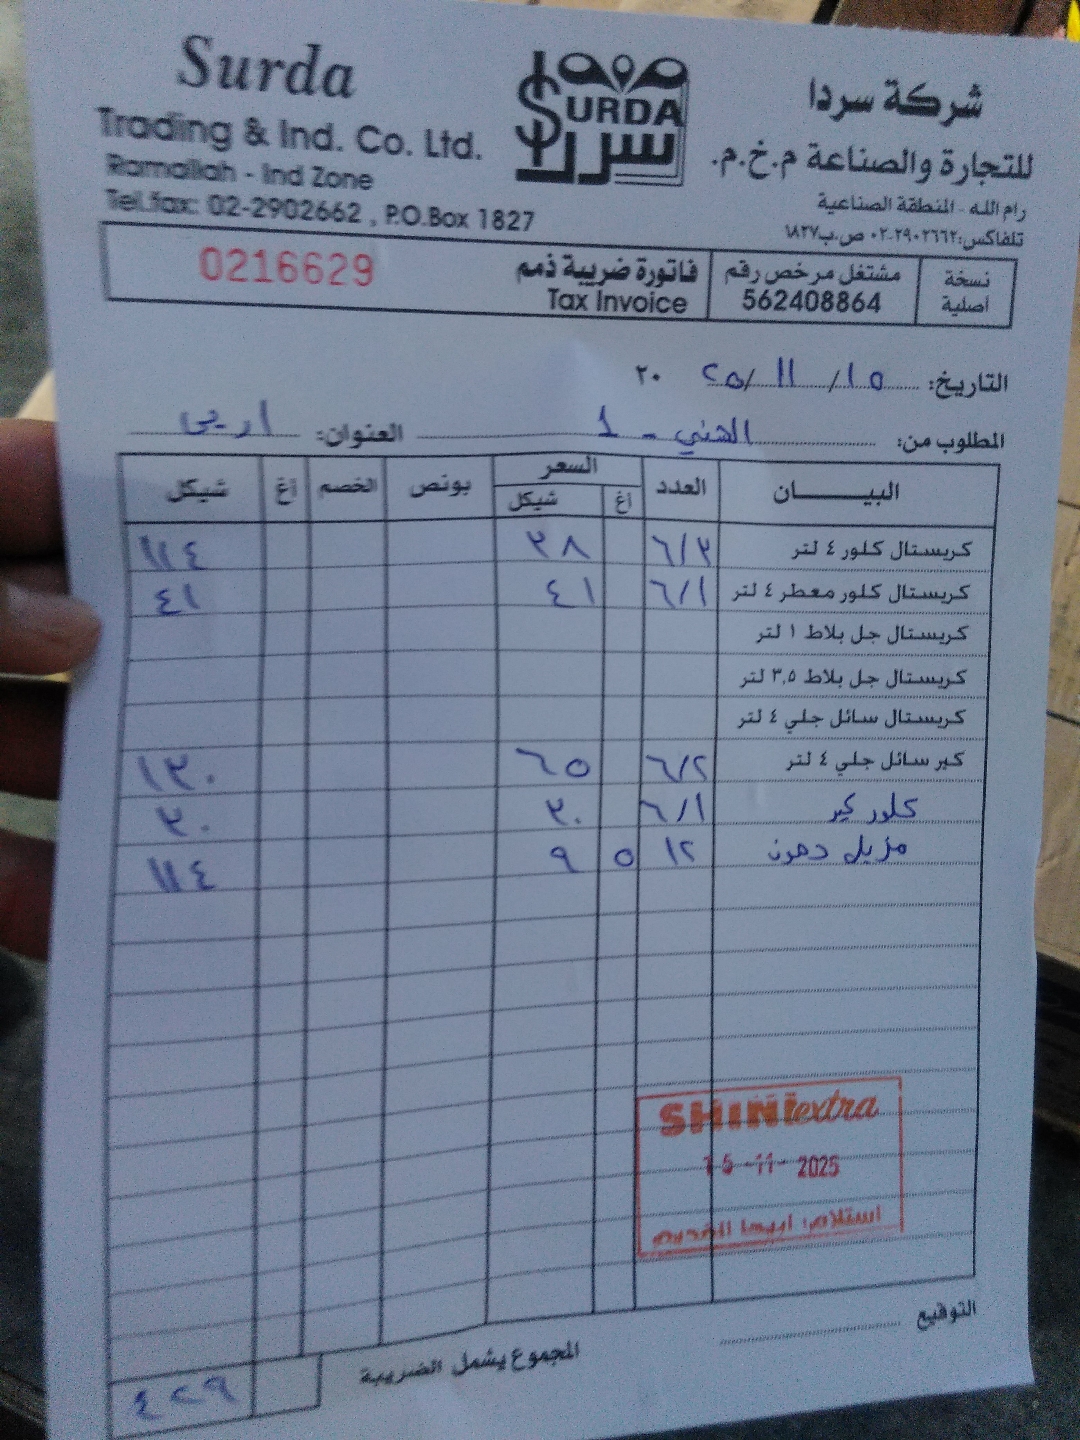 Surda
Trading & Ind. Co. Ltd.
Ramallah - Ind Zone
Tel.fax: 02-2902662 , P.O.Box 1827
SURDA
سردا
شركة سردا
للتجارة والصناعة م.خ.م.
رام الله - المنطقة الصناعية
تلفاكس: ٠٢-٢٩٠٢٦٦٢ ص.ب ١٨٢٧
نسخة أصلية
مشتغل مرخص رقم 562408864
فاتورة ضريبة ذمم
Tax Invoice
0216629
التاريخ: ١٥ / ١١ / ٢٥ ٢٠
المطلوب من: الهني - 1 العنوان:
البيــــــان العدد السعر بونص الخصم أغ شيكل
أغ شيكل
كريستال كلور ٤ لتر ٦/٣ ٣٨ ١١٤
كريستال كلور معطر ٤ لتر ٦/١ ٤١ ٤١
كريستال جل بلاط ١ لتر
كريستال جل بلاط ٣,٥ لتر
كريستال سائل جلي ٤ لتر
كير سائل جلي ٤ لتر ٦/٢ ٦٥ ١٣٠
كلور كير ٦/١ ٣٠ ٣٠
مزيل دهون ١٢ ٥ ٩ ١١٤
SHINI extra
15 -11- 2025
استلام:
التوقيع
المجموع يشمل الضريبة ٤٢٩